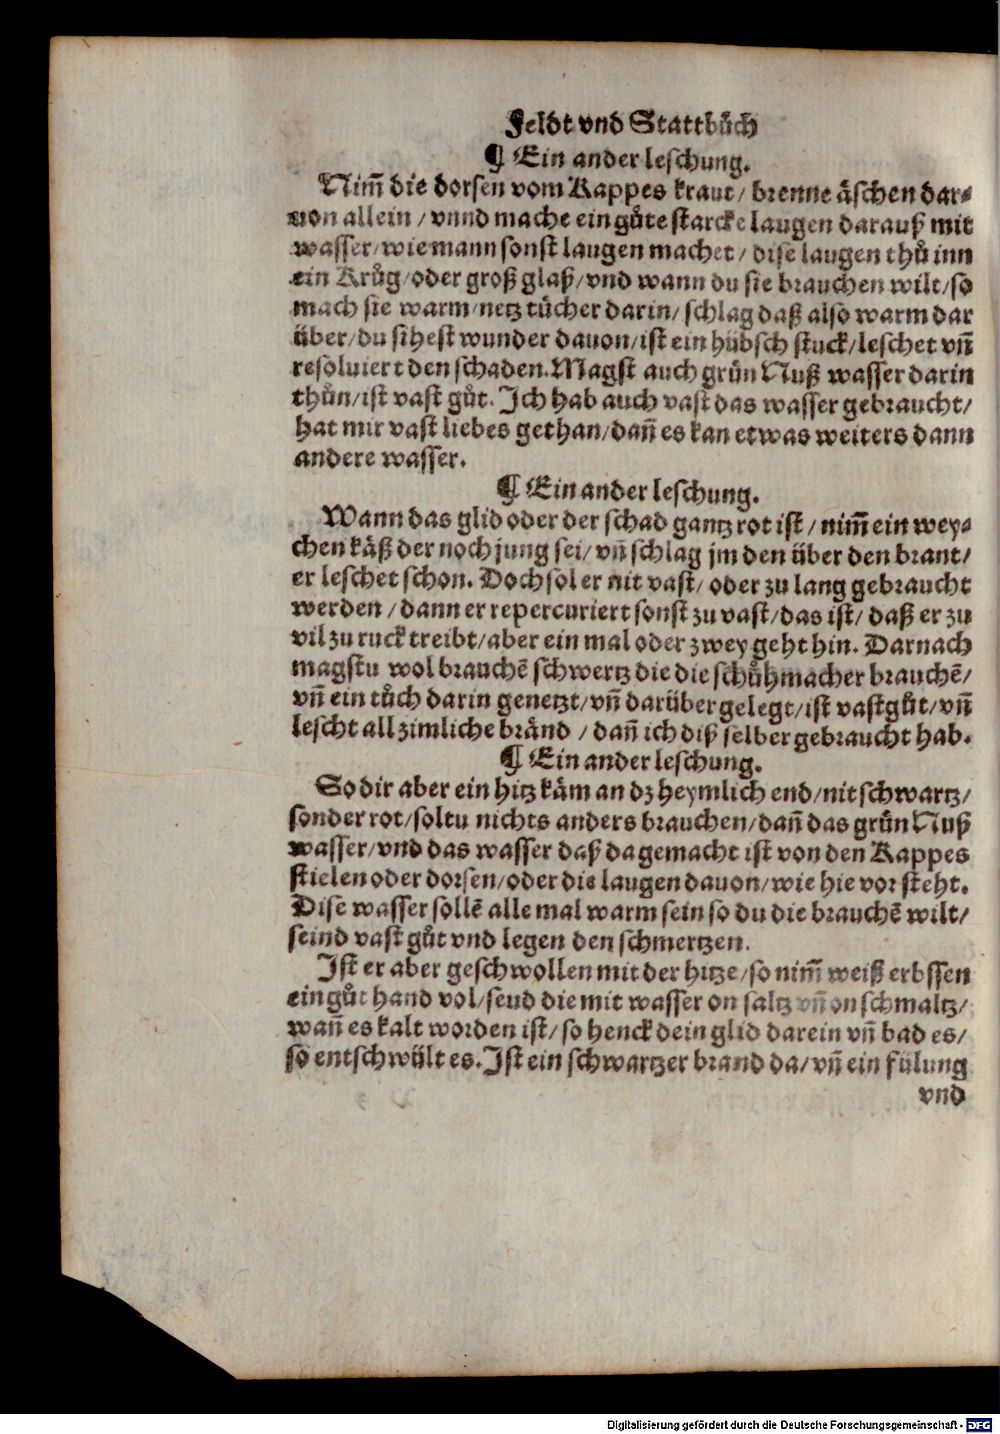 Feldt vnd Stattbůch
¶ Ein ander leschung.
Nim̃ die dorsen vom Kappes kraut / brenne äschen dar⸗
uon allein / vnnd mache ein gůte starcke laugen darauß mit
wasser / wie mann sonst laugen machet / dise laugen thů inn
ein Krůg / oder groß glaß / vnd wann du sie brauchen wilt / so
mach sie warm / netz tůcher darin / schlag daß also warm dar
über / du sihest wunder dauon / ist ein hübsch stuck / leschet vñ
resoluiert den schaden. Magst auch grůn Nuß wasser darin
thůn / ist vast gůt. Ich hab auch vast das wasser gebraucht /
hat mir vast liebes gethan / dañ es kan etwas weiters dann
andere wasser.
¶ Ein ander leschung.
Wann das glid oder der schad gantz rot ist / nim̃ ein wey⸗
chen käß der noch jung sei / vñ schlag jm den über den brant /
er leschet schon. Doch sol er nit vast / oder zu lang gebraucht
werden / dann er repercuriert sonst zu vast / das ist / daß er zu
vil zu ruck treibt / aber ein mal oder zwey geht hin. Darnach
magstu wol brauchẽ schwertz die die schůhmacher brauchẽ /
vñ ein tůch darin genetzt / vñ darüber gelegt / ist vast gůt / vñ
lescht all zimliche bränd / dañ ich diß selber gebraucht hab.
¶ Ein ander leschung.
So dir aber ein hitz käm an dz heymlich end / nit schwartz /
sonder rot / soltu nichts anders brauchen / dañ das grůn Nuß
wasser / vnd das wasser daß da gemacht ist von den Kappes
stielen oder dorsen / oder die laugen dauon / wie hie vor steht.
Dise wasser sollẽ alle mal warm sein so du die brauchẽ wilt /
seind vast gůt vnd legen den schmertzen.
Ist er aber geschwollen mit der hitze / so nim̃ weiß erbssen
ein gůt hand vol / seud die mit wasser on saltz vñ on schmaltz /
wañ es kalt worden ist / so henck dein glid darein vñ bad es /
so entschwült es. Ist ein schwartzer brand da / vñ ein fülung
vnd
Digitalisierung gefördert durch die Deutsche Forschungsgemeinschaft - DFG